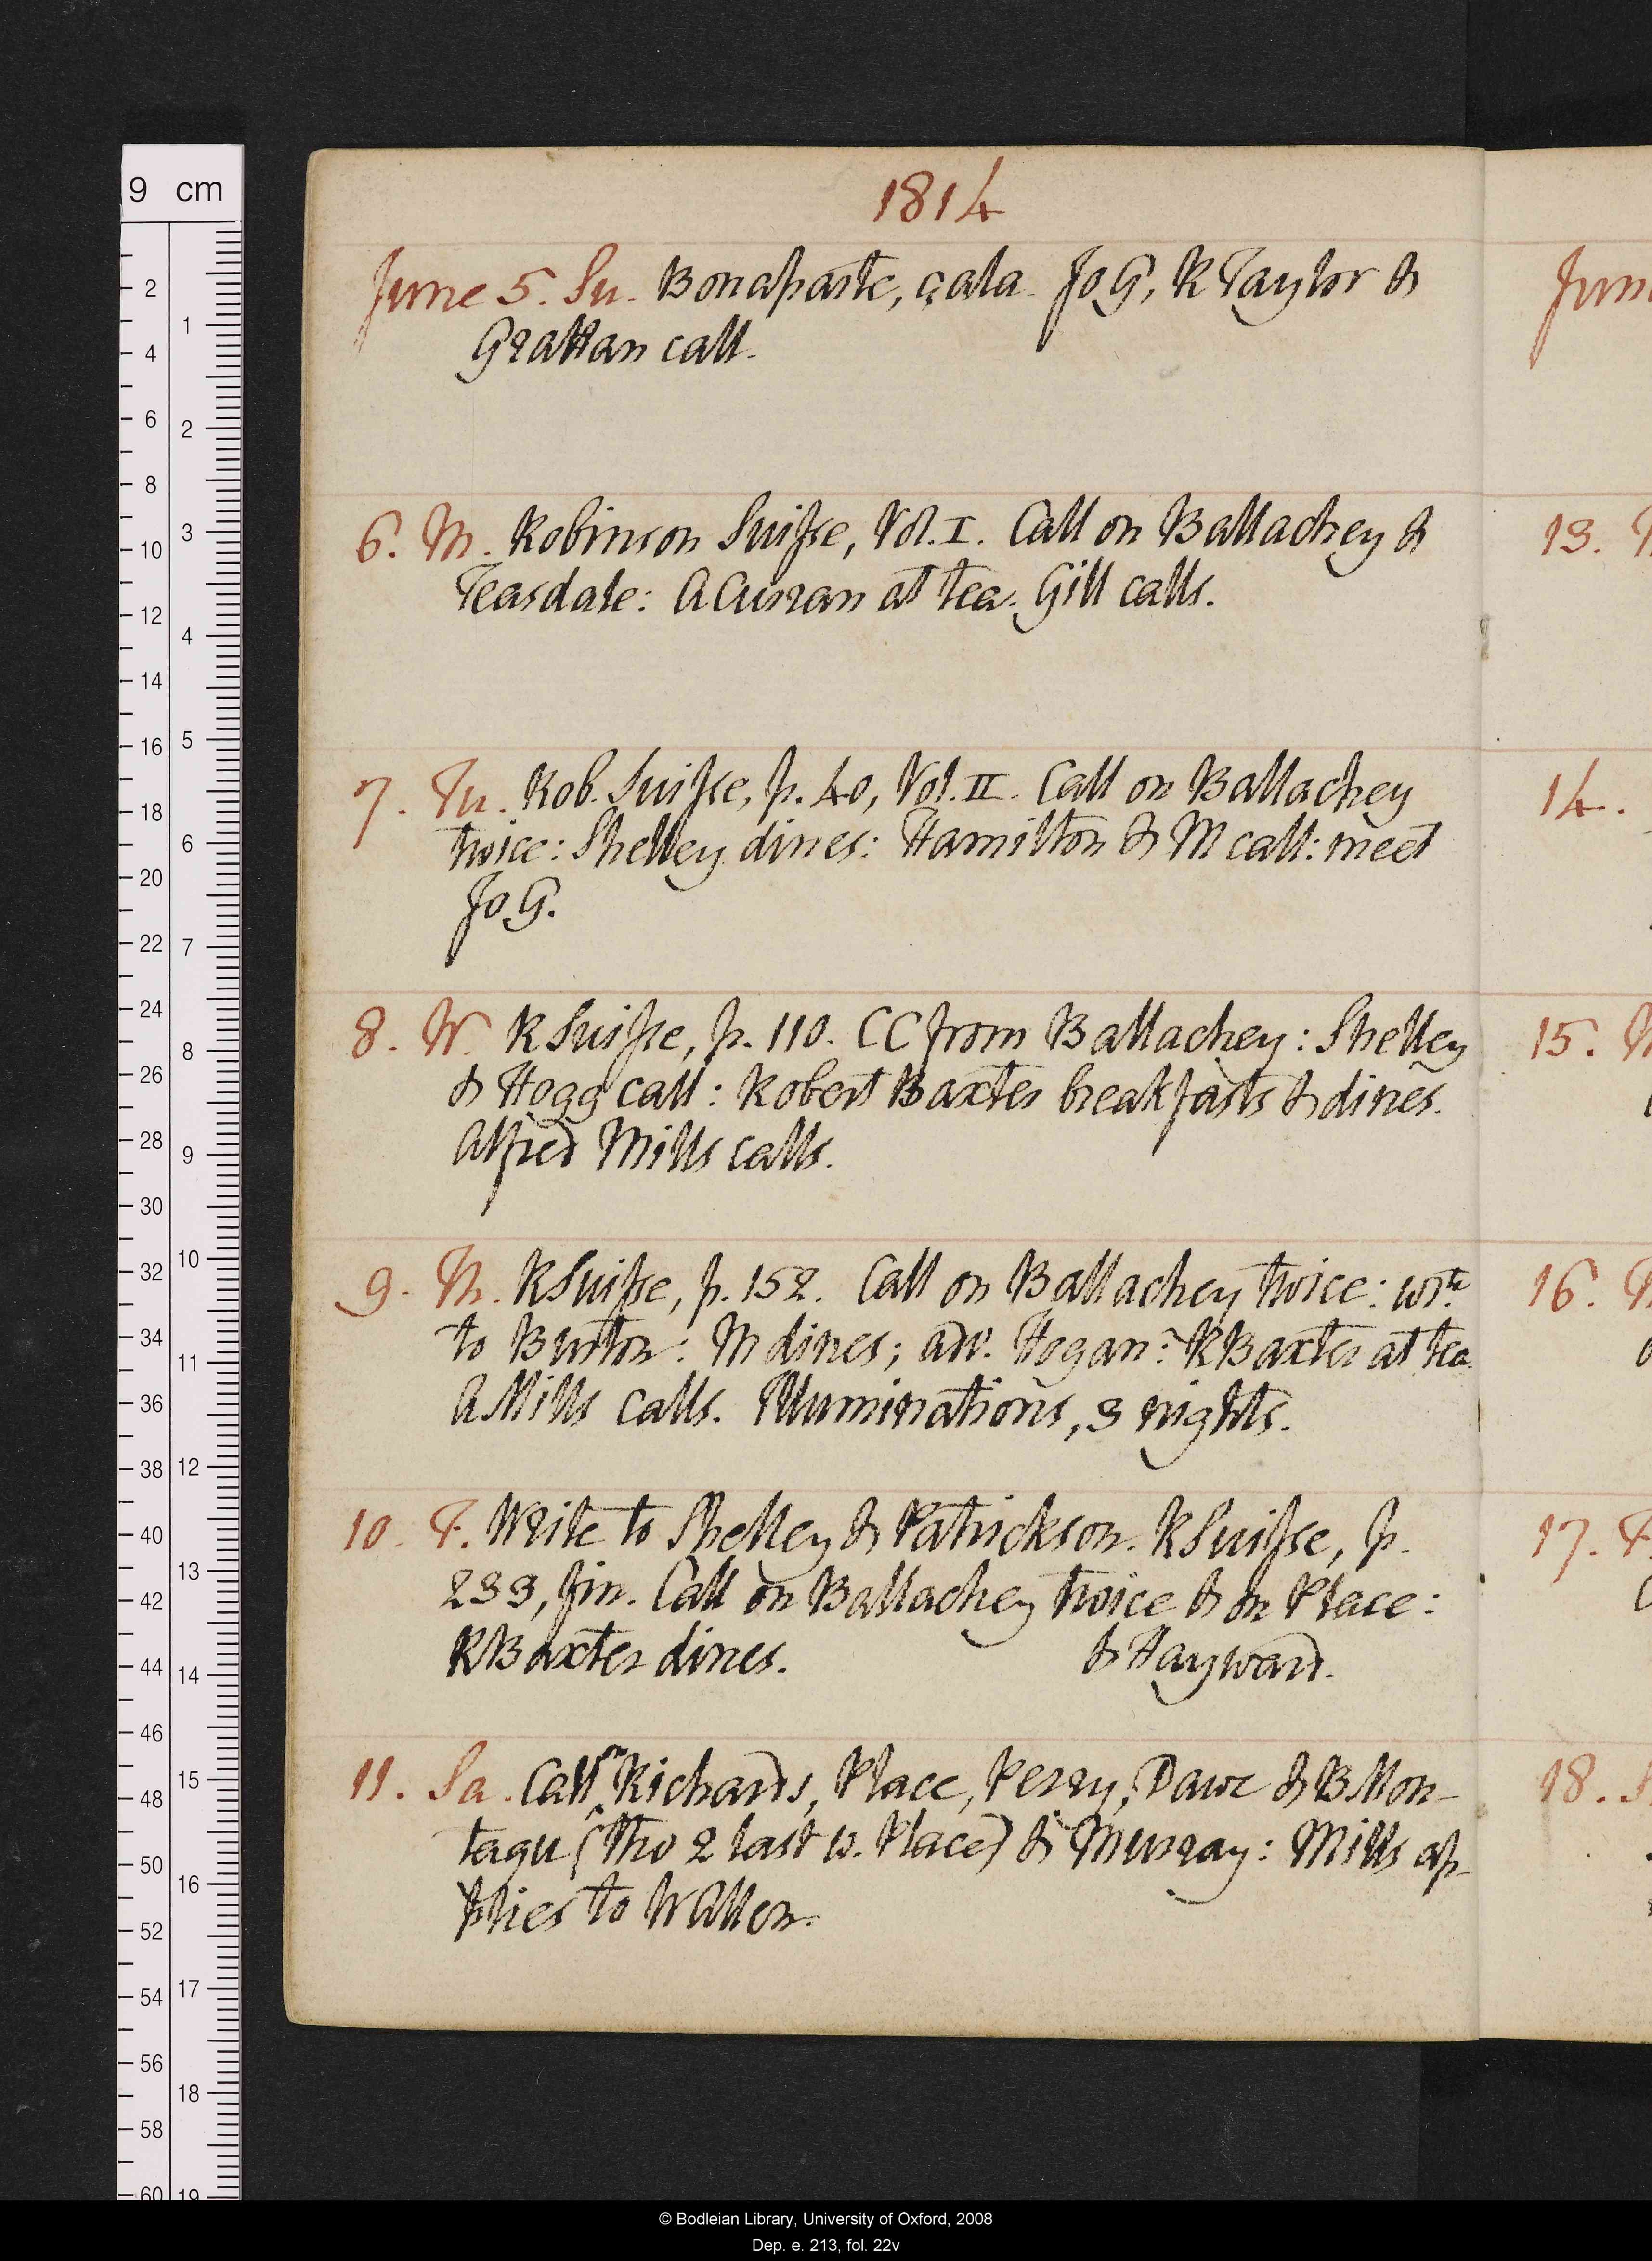 9 cm
1814
June 5. Su. Bonaparte, çala. Jo G, R Taylor &
Grattan call.
6. M. Robinson Suiſse, Vol. I. Call on Ballachey &
Teasdale: A Curran at tea. Gill calls.
7. Tu. Rob. Suiſse, p. 40, Vol. II. Call on Ballachey
twice: Shelley dines: Hamilton & M call: meet
Jo G.
8. W. R Suiſse, p. 110. CC from Ballachey: Shelley
& Hogg call: Robert Baxter breakfasts & dines.
Alfred Mills calls.
9. Th. R Suiſse, p. 152. Call on Ballachey twice: wte
to Burton: M dines; adv. Hogan: R Baxter at tea.
A Mills calls. Illuminations, 3 nights.
10. F. Write to Shelley & Patrickson. R Suiſse, p.
233, fin. Call on Ballachey twice & on Place:
R Baxter dines. & Hayward.
11. Sa. Call on Richards, Place, Perry, Dawe & B Mon-
tagu (Tho 2 last w. Place) & Murray: Mills ap-
plies to W Allen.
June
13.
14.
15.
16.
17. F.
18.
© Bodleian Library, University of Oxford, 2008
Dep. e. 213, fol. 22v